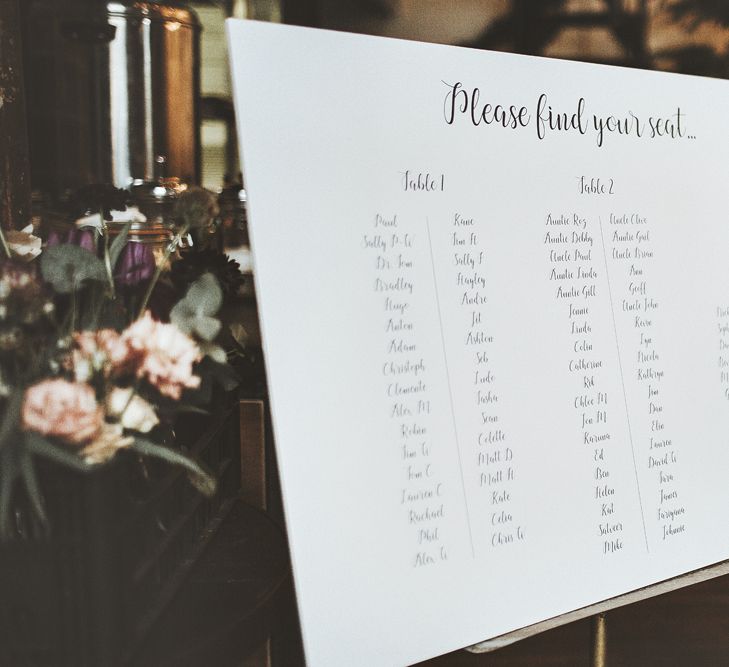 Please find your seat...
Table 1
Paul
Sally P-W
Dr. Tom
Bradley
Hugo
Anton
Adam
Christoph
Clemente
Alex M
Robin
Tim W
Tom C
Lauren C
Rachael
Phil
Alex W
Kane
Tom H
Sally F
Hayley
Andre
Jet
Ashton
Seb
Jude
Tasha
Sean
Colette
Matt D
Matt H
Kate
Celia
Chris W
Table 2
Auntie Roz
Auntie Debby
Uncle Paul
Auntie Linda
Auntie Gill
Jonnie
Linda
Colin
Catherine
Rik
Chloe M
Jon M
Karuna
Ed
Ben
Helen
Kat
Satveer
Mike
Uncle Clive
Auntie Gail
Uncle Brian
Ann
Geoff
Uncle John
Kevin
Lyn
Nicola
Kathryn
Jim
Dan
Elin
Lauren
David W
Tara
James
Farzana
Johnnie